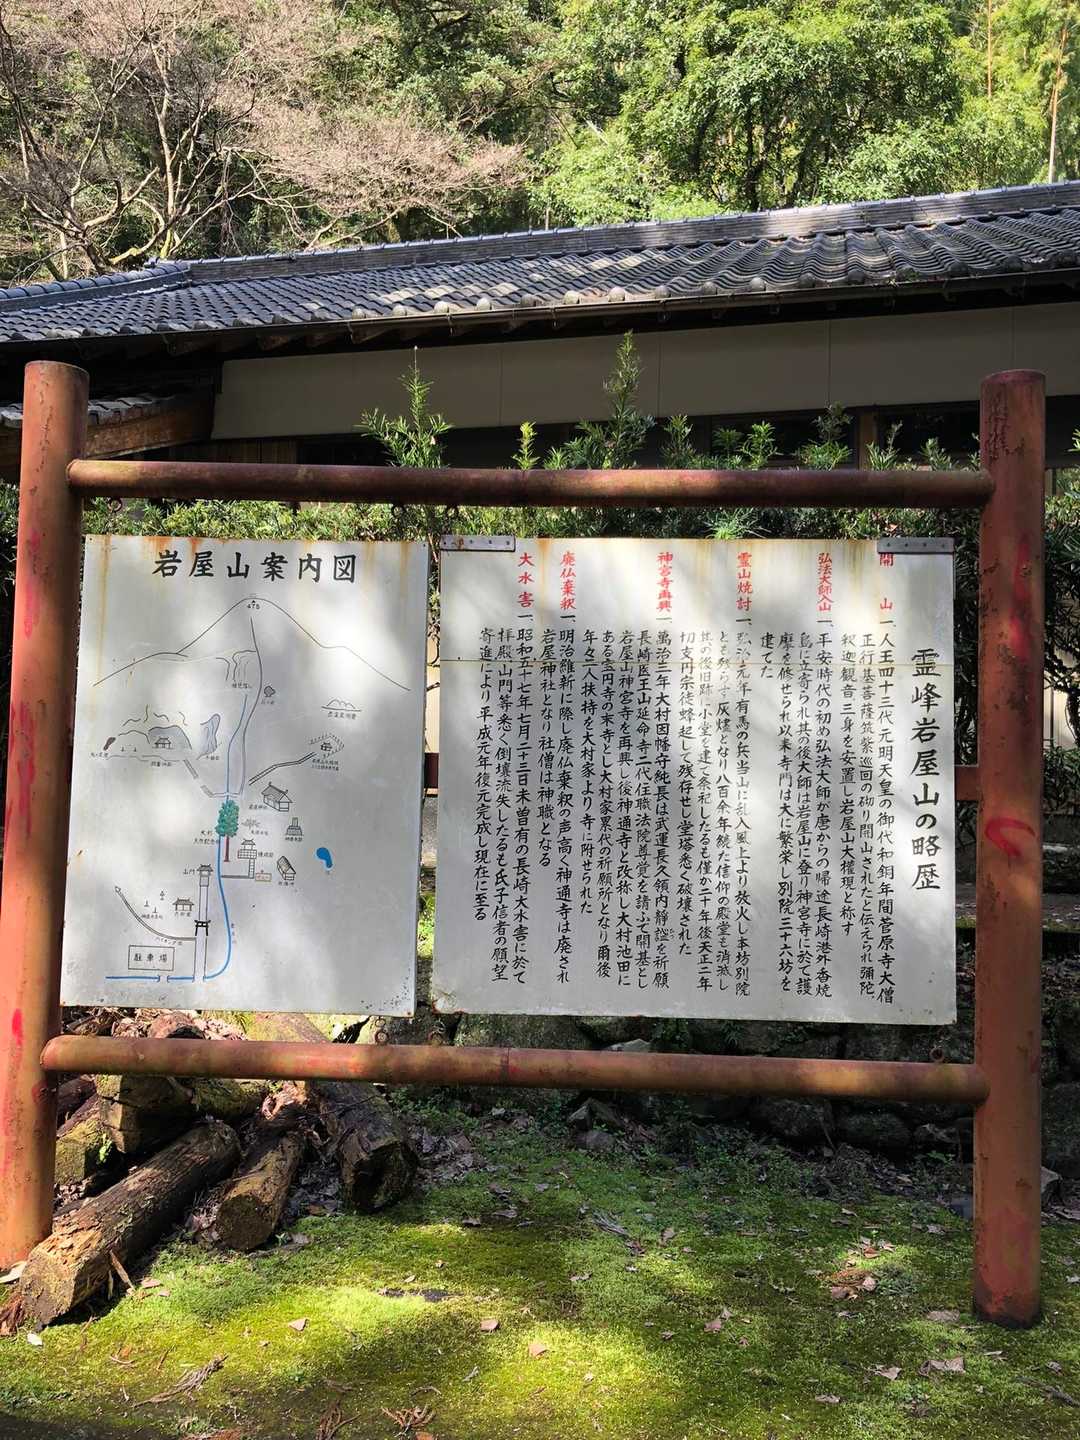 岩屋山案内図
475
山門
大杉
駐車場
霊峰岩屋山の略歴
開山
一、人王四十三代元明天皇の御代和銅年間菅原寺大僧
正行基菩薩筑紫巡回の砌り開山されたと伝えられ彌陀、
釈迦観音三身を安置し岩屋山大権現と称す
弘法大師入山
一、平安時代の初め弘法大師が唐からの帰途長崎港外香焼
島に立寄られ其の後大師は岩屋山に登り神宮寺に於て護
摩を修せられ以来寺門は大に繁栄し別院三十六坊を
建てた
霊山焼討
一、弘治元年有馬の兵当山に乱入風上より放火し本坊別院
とも残らず灰燼となり八百余年続た信仰の殿堂も消滅し
其の後旧跡に小堂を建て祭祀したるも僅か二十年後天正二年
切支丹宗徒蜂起して残存せし堂塔悉く破壊された
神宮寺再興
一、萬治三年大村因幡守純長は武運長久領内靜謐を祈願
長崎医王山延命寺二代住職法院尊覚を請ふて開基とし
岩屋山神宮寺を再興し後神通寺と改称し大村池田に
ある宝円寺の末寺とし大村家累代の祈願所となり爾後
年々二人扶持を大村家より寺に附せられた
廃仏棄釈
一、明治維新に際し廃仏棄釈の声高く神通寺は廃され
岩屋神社となり社僧は神職となる
大水害
一、昭和五十七年七月二十三日未曽有の長崎大水害に於て
拝殿山門等悉く倒壊流失したるも氏子信者の願望
寄進により平成元年復元完成し現在に至る